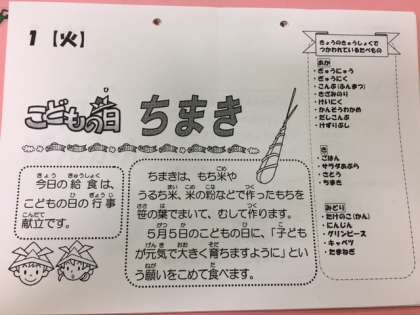 1【火】
こどもの日 ちまき
今日の給食は、
こどもの日の行事
献立です。
ちまきは、もち米や
うるち米、米の粉などで作ったもちを
笹の葉でまいて、むして作ります。
5月5日のこどもの日に、「子ども
が元気で大きく育ちますように」とい
う願いをこめて食べます。
きょうのきゅうしょくで
つかわれているたべもの
あか
・ぎゅうにゅう
・ぎゅうにく
・こんぶ(ふんまつ)
・きざみのり
・けいにく
・かんそうわかめ
・だしこんぶ
・けずりぶし
き
・ごはん
・サラダあぶら
・さとう
・ちまき
みどり
・たけのこ(かん)
・にんじん
・グリンピース
・キャベツ
・たまねぎ